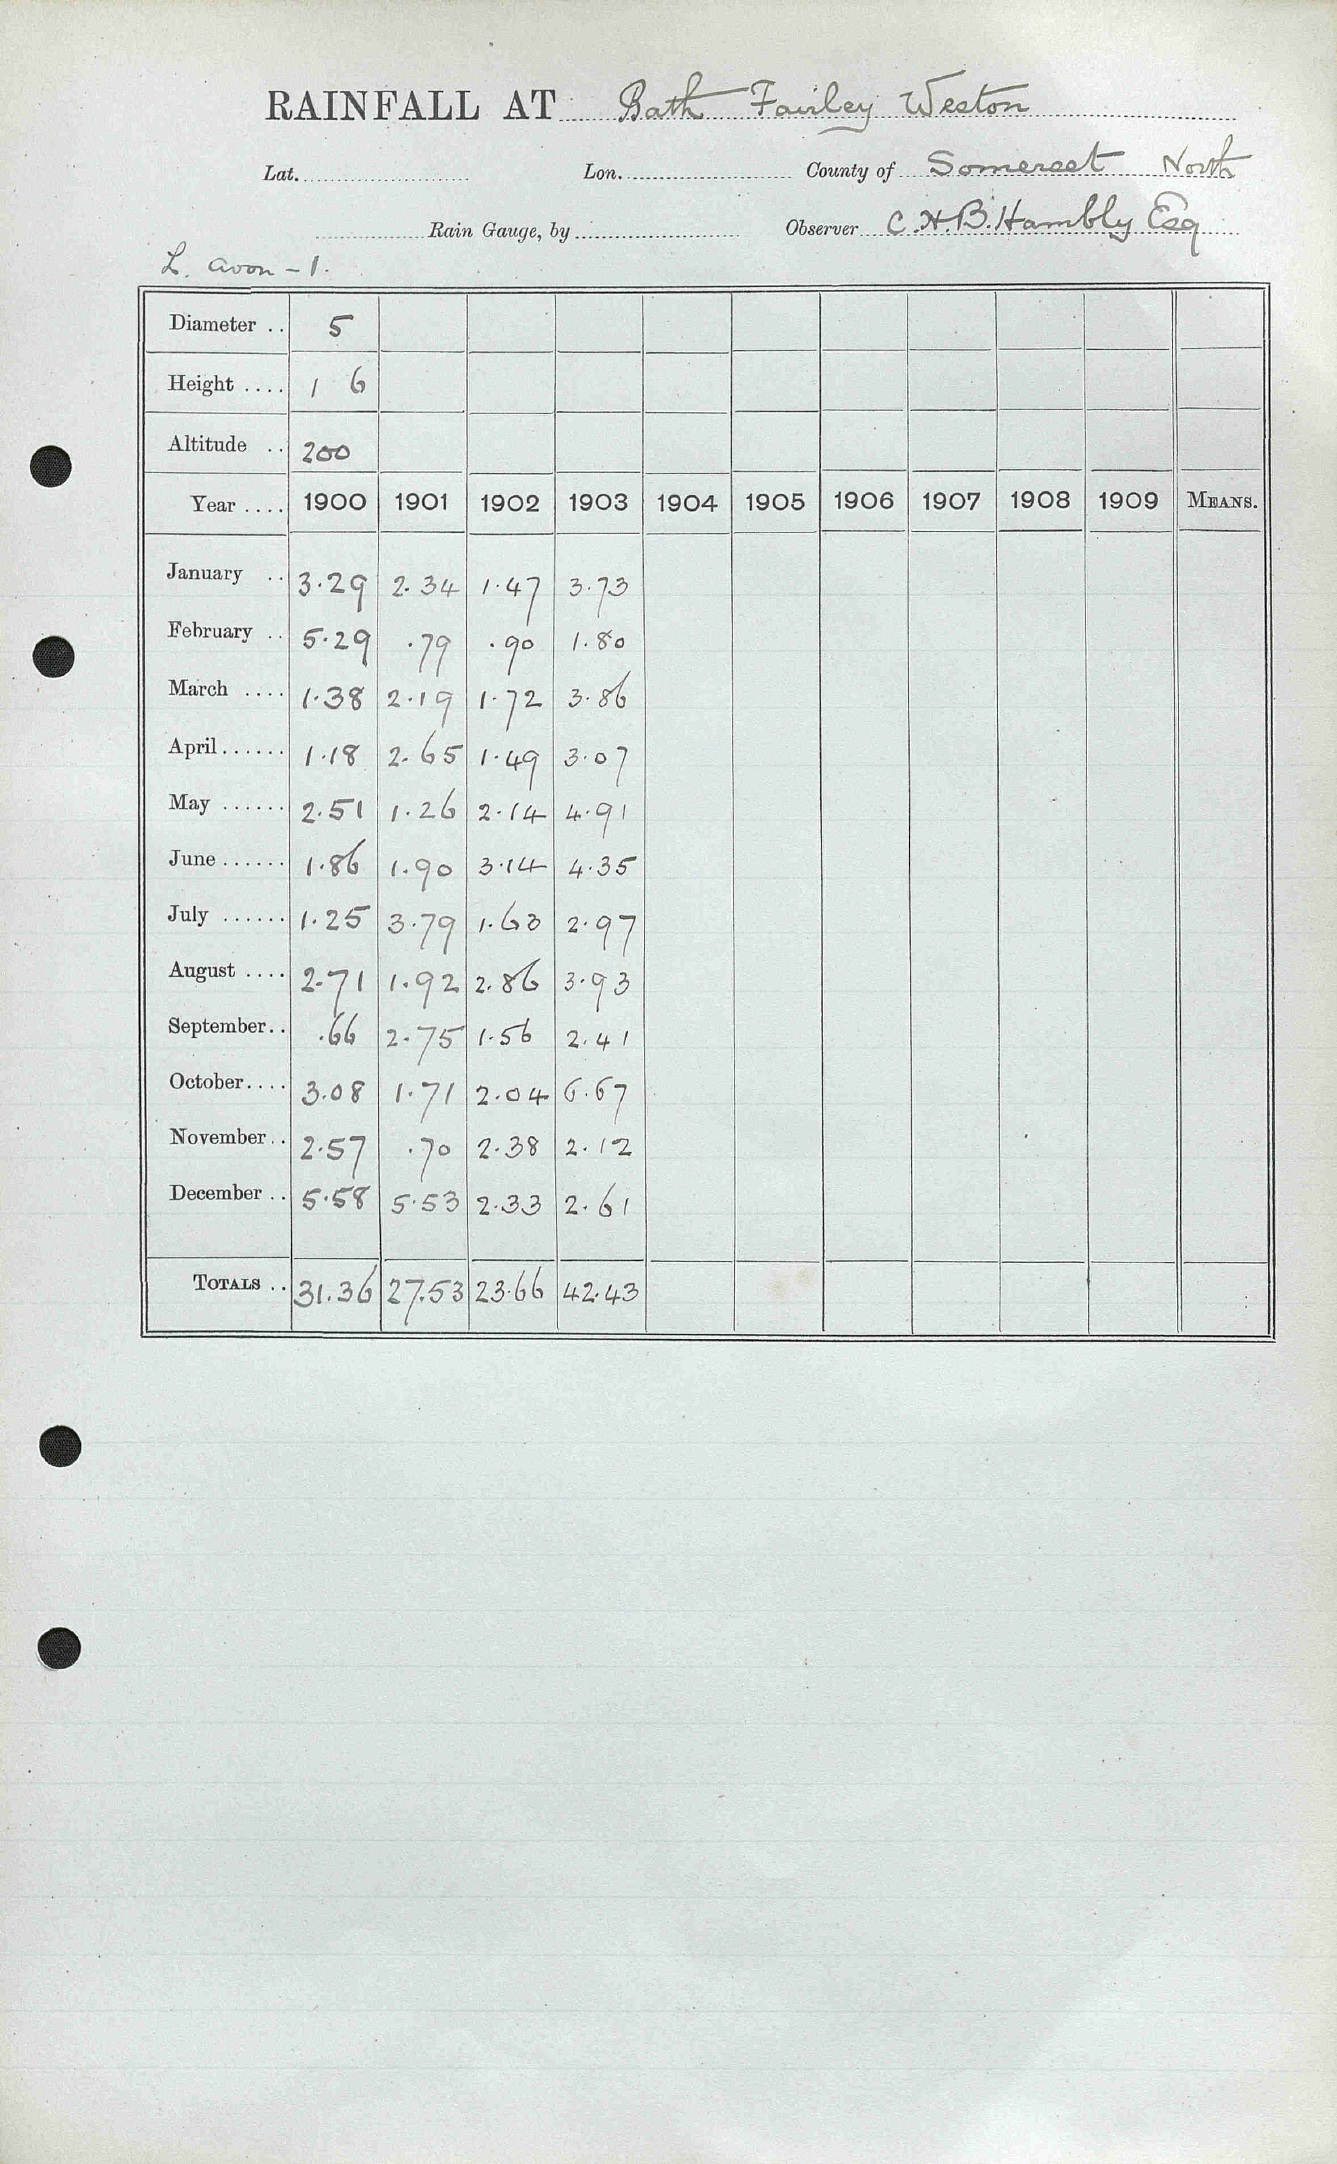 RAINFALL AT Bath Fairley Weston
Lat. Lon. County of Somerset North
Rain Gauge, by Observer C.H.B. Hambly Esq
L. Avon - 1.
Diameter .. 5
Height .... 1 6
Altitude .. 200
Year .... 1900 1901 1902 1903 1904 1905 1906 1907 1908 1909 MEANS.
January .. 3.29 2.34 1.47 3.73
February .. 5.29 .79 .90 1.80
March .... 1.38 2.19 1.72 3.86
April ...... 1.18 2.65 1.49 3.07
May ...... 2.51 1.26 2.14 4.91
June ...... 1.86 1.90 3.14 4.35
July ...... 1.25 3.79 1.63 2.97
August .... 2.71 1.92 2.86 3.93
September.. .66 2.75 1.56 2.41
October.... 3.08 1.71 2.04 6.67
November.. 2.57 .70 2.38 2.12
December .. 5.58 5.53 2.33 2.61
TOTALS .. 31.36 27.53 23.66 42.43